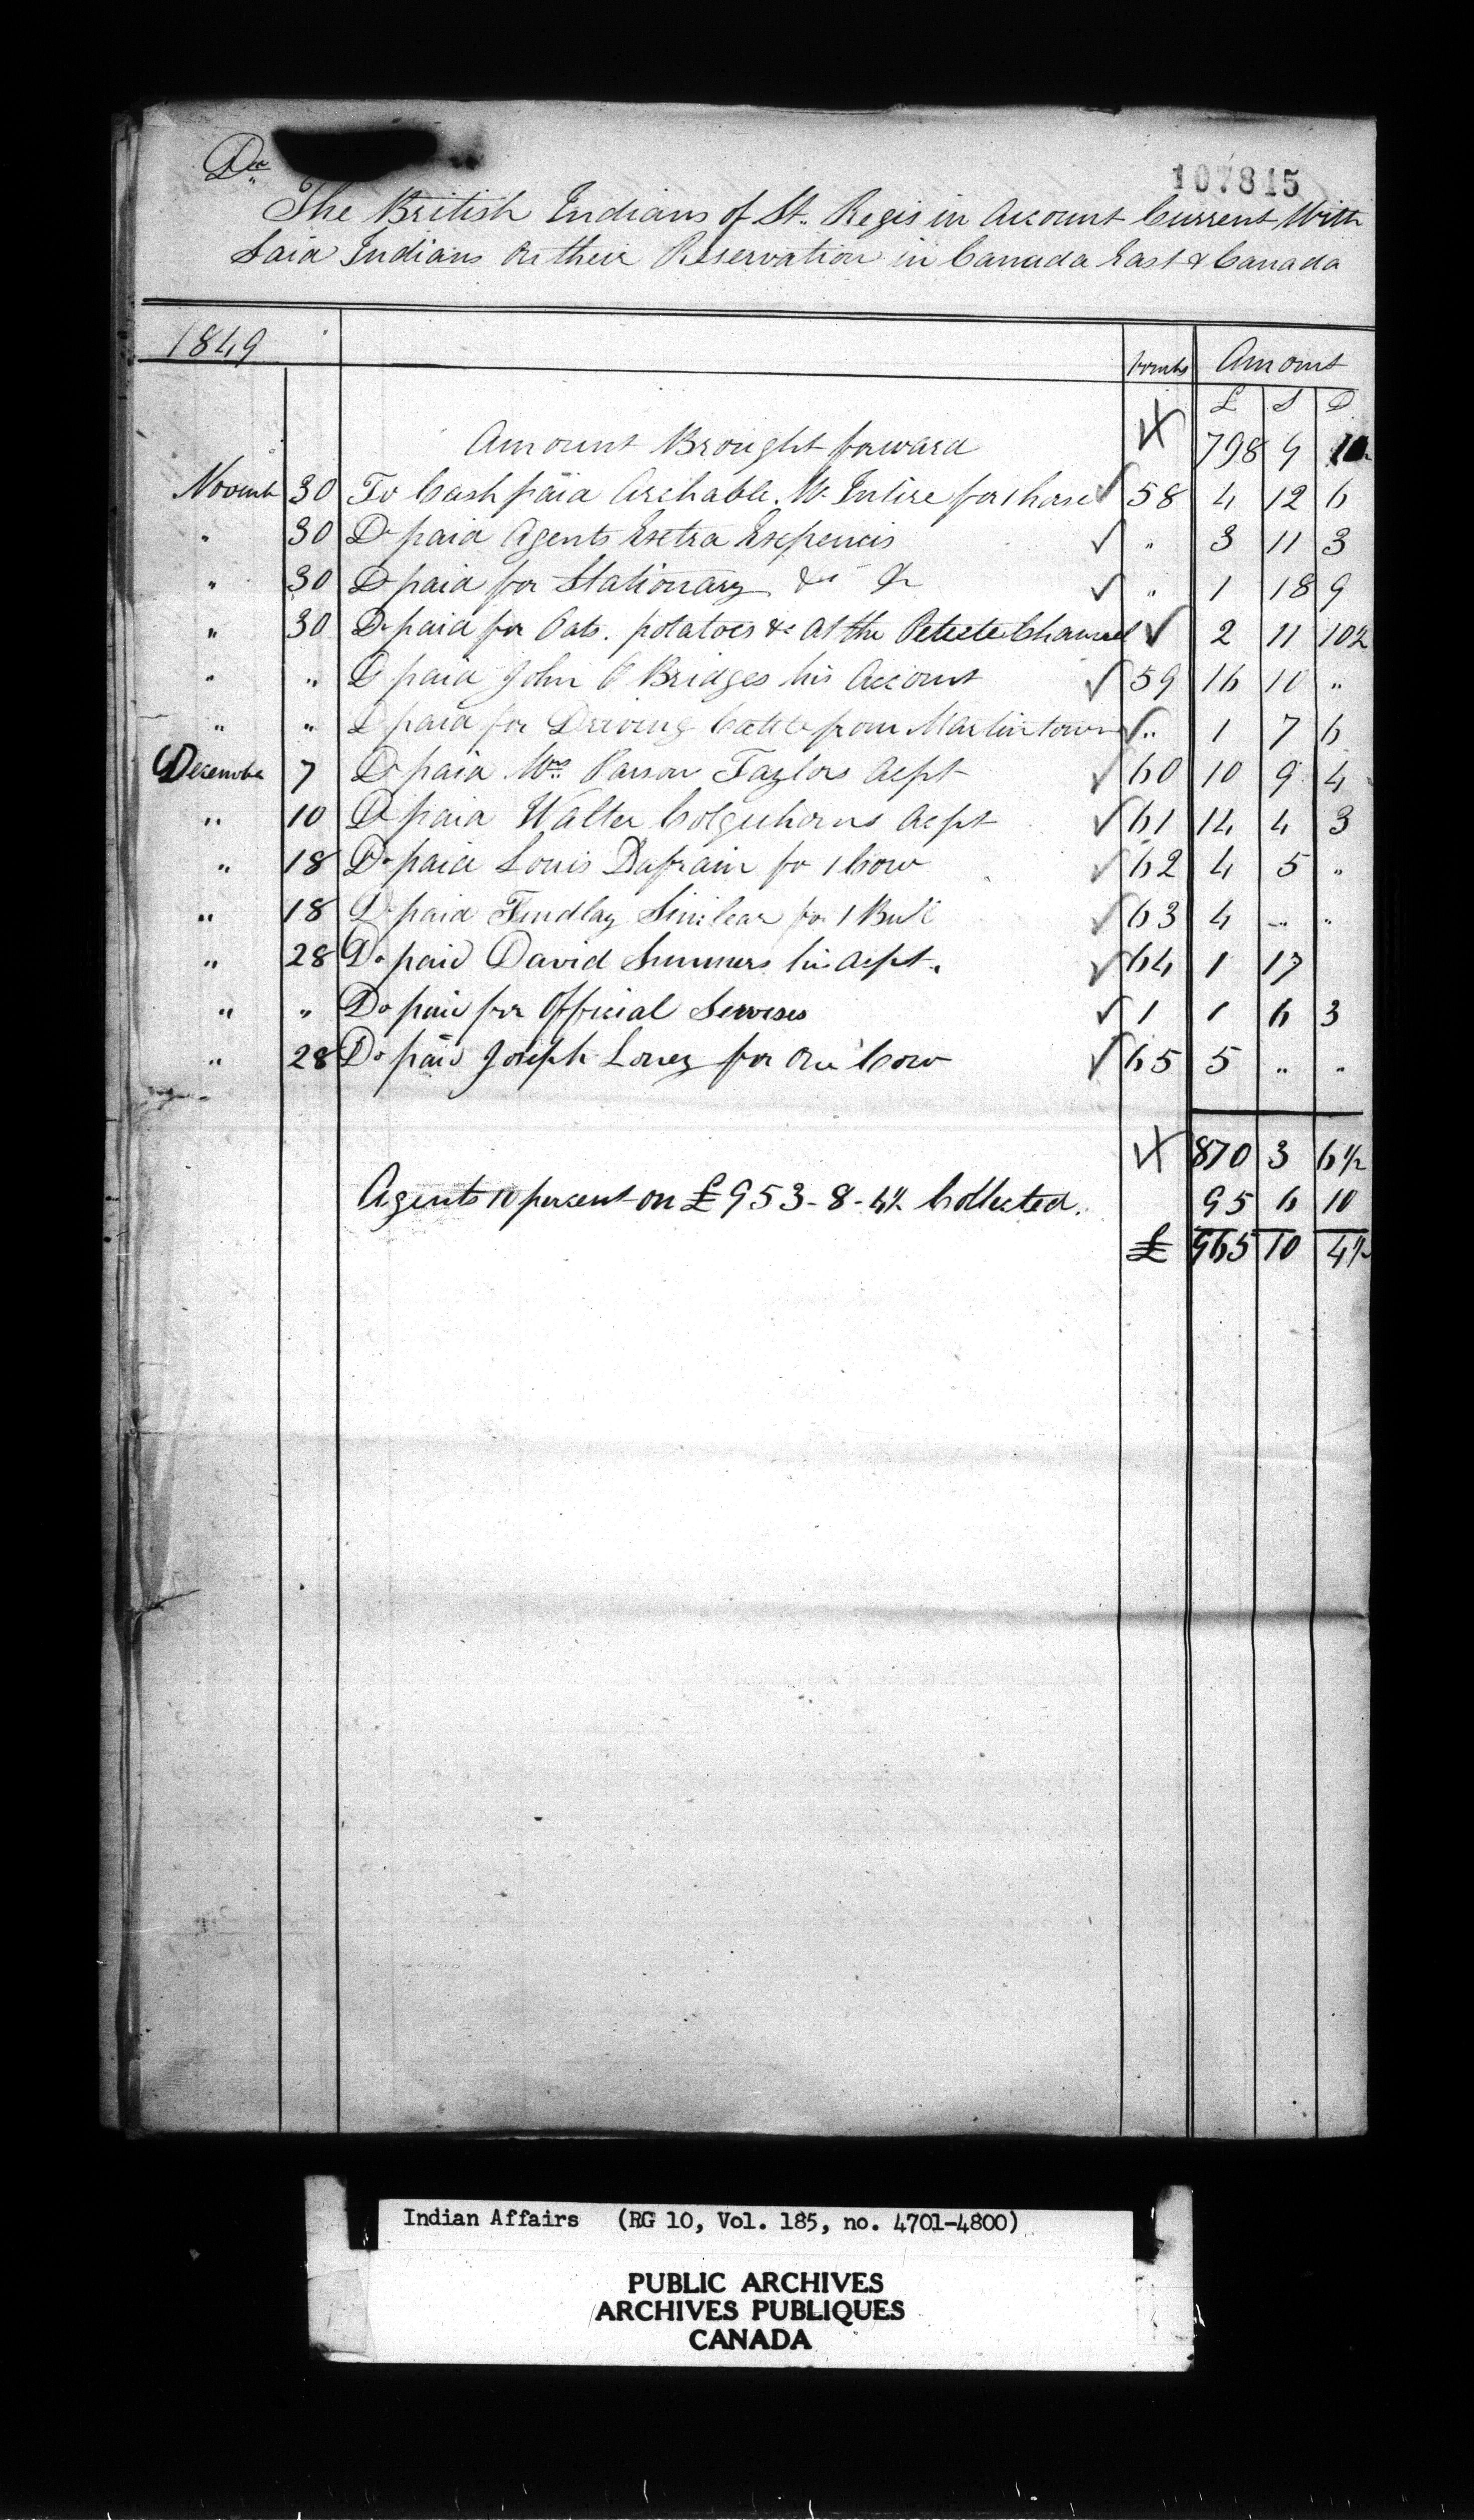 Dr
107815
The British Indians of St. Regis in Account Current With
Said Indians On their Reservation in Canada East & Canada
1849
Amount
£ S D
Amount Brought forward 798 9
Novemb 30 To Cash paid Archable. Mc Intire for 1 horse 58 4 12 6
" 30 Do paid Agents Exetra Expencis " 3 11 3
" 30 Do paid for Stationary &c &c " 1 18 9
" 30 Do paid for Oats. potatoes &c at the Channel 2 11 10½
" " Do paid John C Bridges his Account 59 16 10 "
" " Do paid for Driving Cattle from Martintown " 1 7 6
December 7 Do paid Parson Taylors Acpt 60 10 9 4
" 10 Do paid Walter Colquhorns Acpt 61 14 4 3
" 18 Do paid Louis for 1 Cow 62 4 5 "
" 18 Do paid Findlay for 1 Bull 63 4 " "
" 28 Do paid David Summers his Acpt. 64 1 17
" " Do paid for Official Servises 1 1 6 3
" 28 Do paid Joseph for One Cow 65 5 " "
870 3 6½
Agents 10 percent on £953-8-4½ Collected. 95 6 10
£ 965 10 4½
Indian Affairs (RG 10, Vol. 185, no. 4701-4800)
PUBLIC ARCHIVES
ARCHIVES PUBLIQUES
CANADA